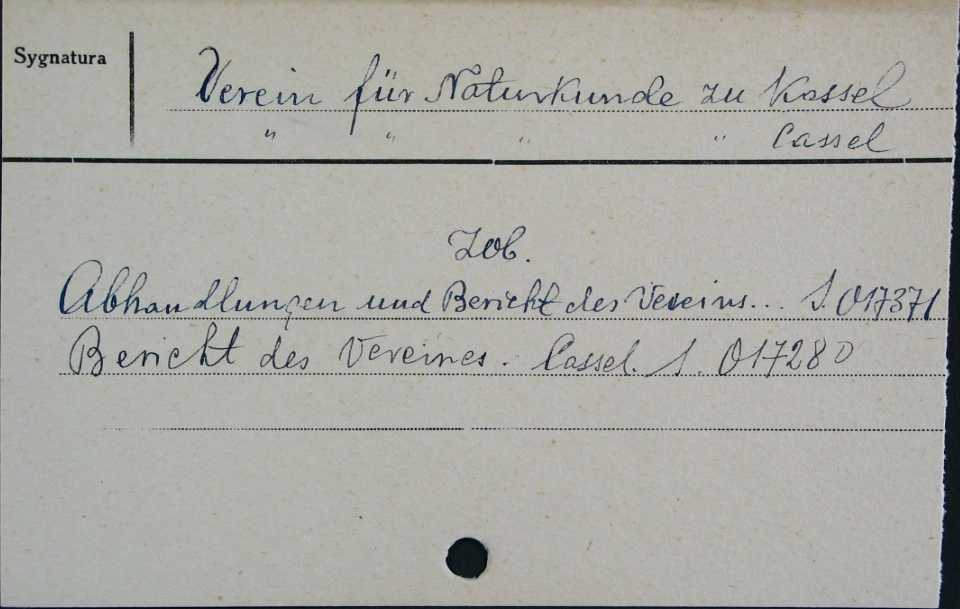 Sygnatura
Verein für Naturkunde zu Kassel
" " " " Cassel
Zob.
Abhandlungen und Bericht des Vereins... S. 017371
Bericht des Vereines. Cassel. S. 017280